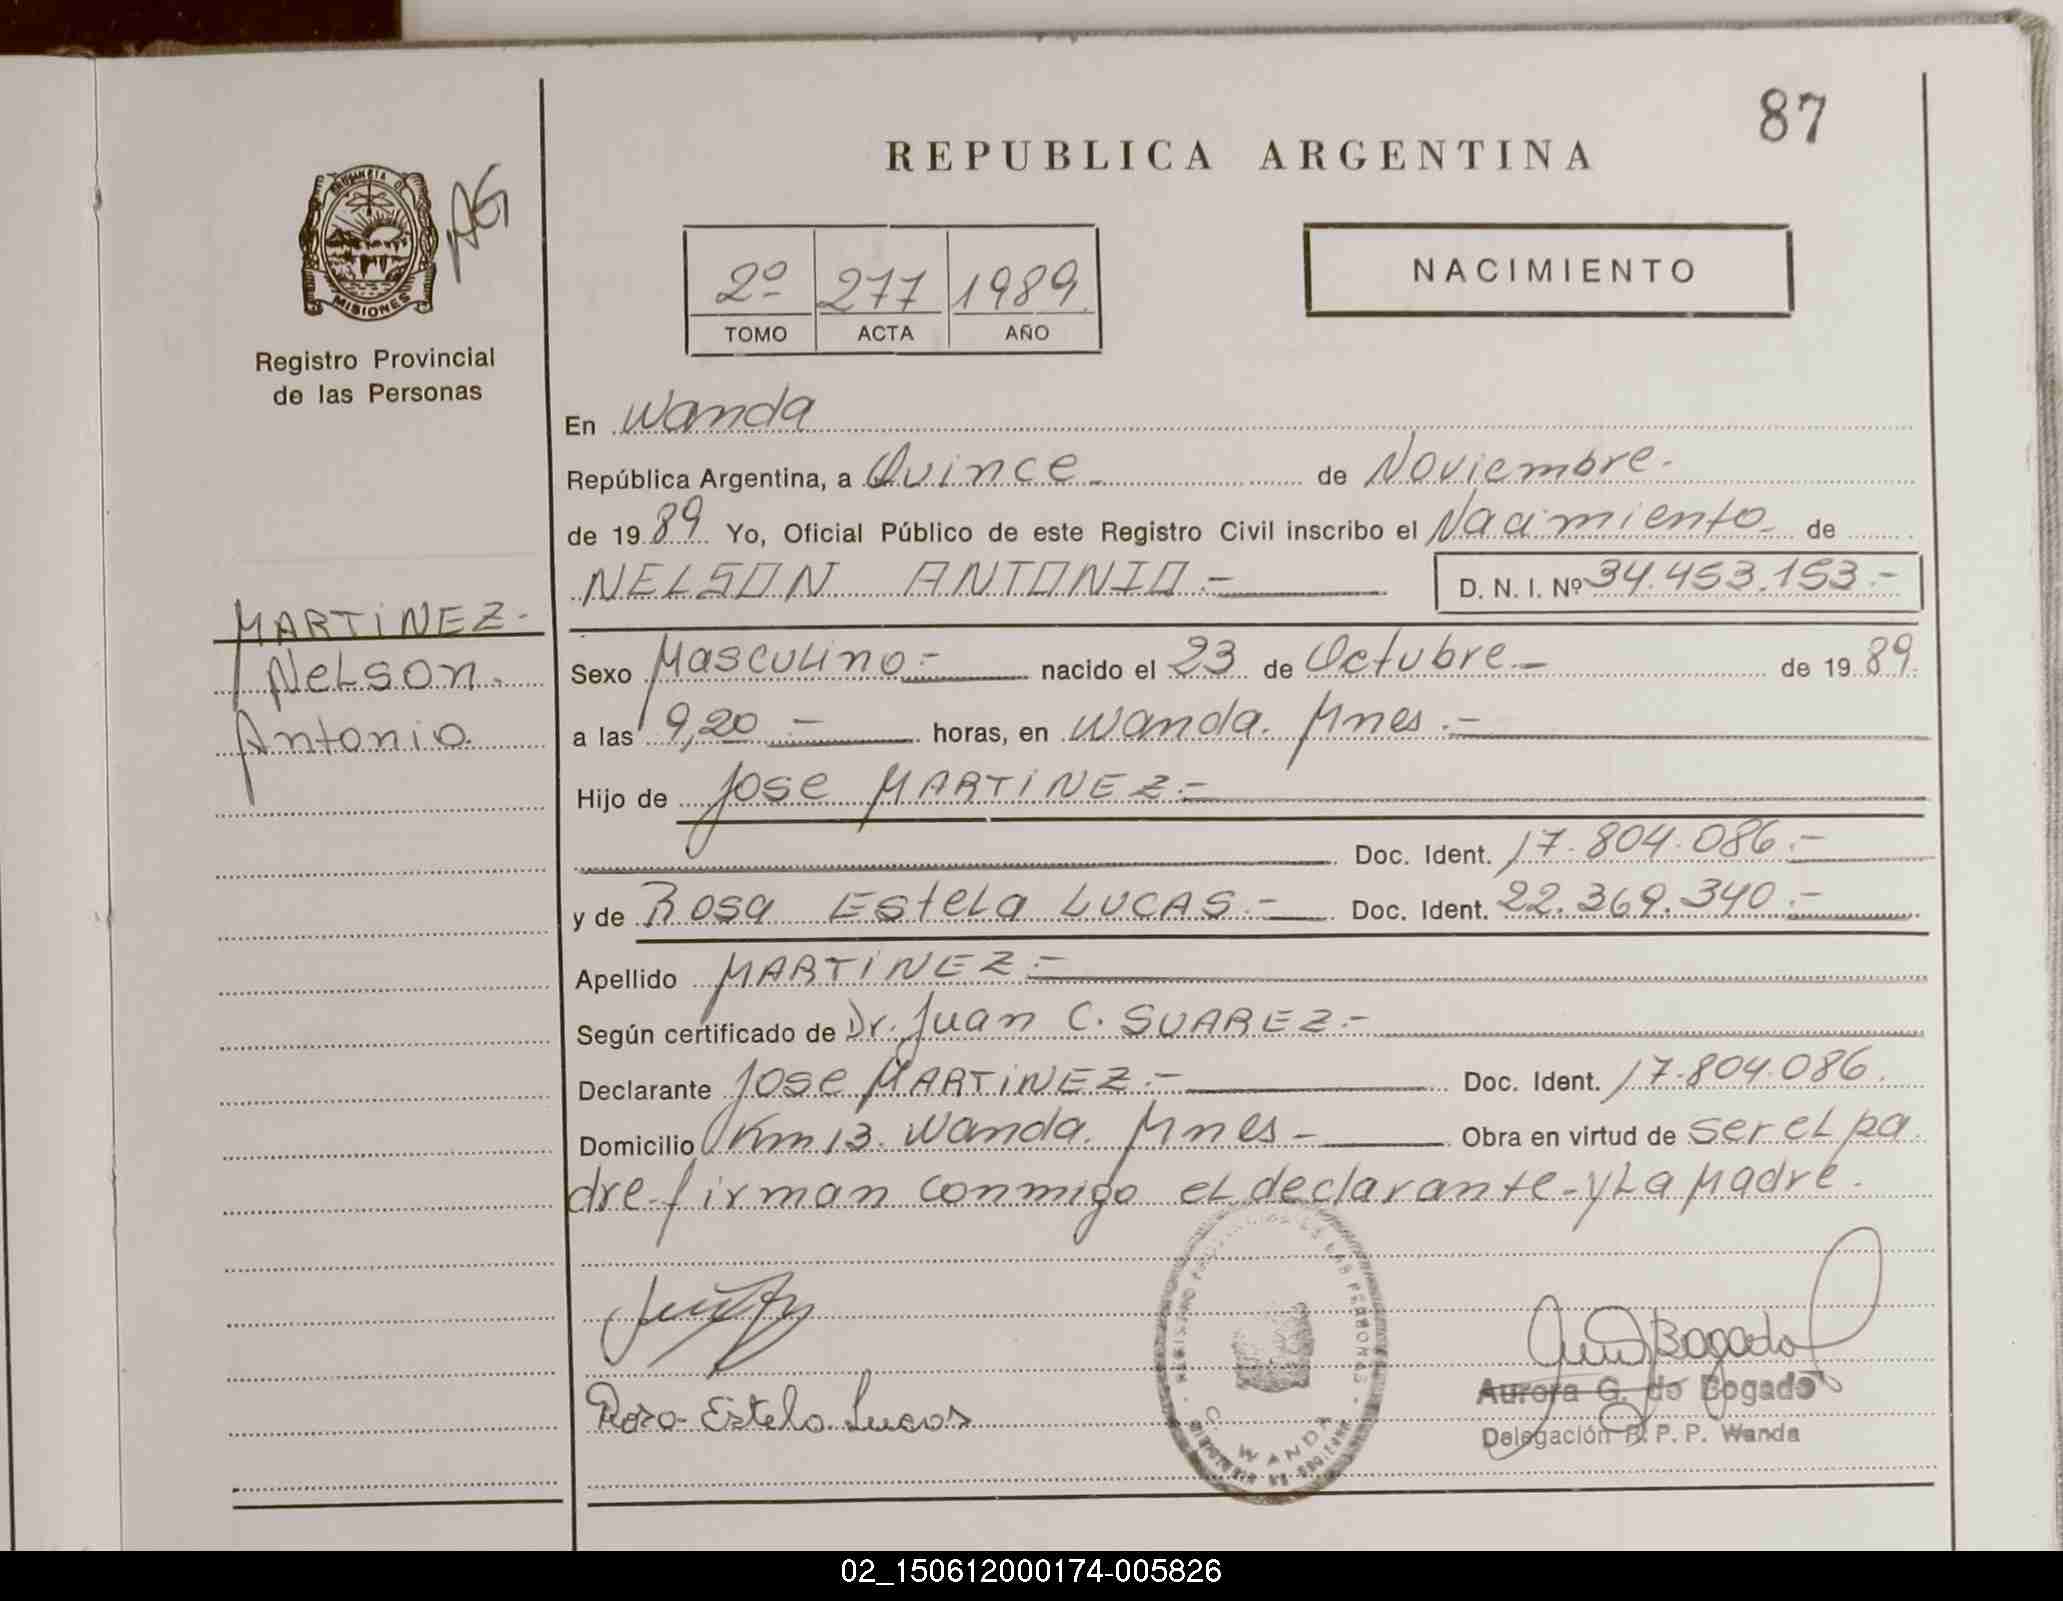 87
REPUBLICA ARGENTINA
PROVINCIA DE
MISIONES
AG
Registro Provincial
de las Personas
2º 277 1989
TOMO ACTA AÑO
NACIMIENTO
En Wanda
República Argentina, a Quince de Noviembre.
de 1989 Yo, Oficial Público de este Registro Civil inscribo el Nacimiento de
NELSON ANTONIO.- D. N. I. Nº 34.453.153.-
MARTINEZ-
Nelson.
Antonio.
Sexo Masculino.- nacido el 23 de Octubre.- de 1989.
a las 9,20 - horas, en Wanda. Mnes.-
Hijo de Jose MARTINEZ.-
Doc. Ident. 17.804.086.-
y de Rosa Estela LUCAS.- Doc. Ident. 22.369.340.-
Apellido MARTINEZ.-
Según certificado de Dr. Juan C. SUAREZ.-
Declarante Jose MARTINEZ.- Doc. Ident. 17.804.086.
Domicilio Km 13. Wanda. Mnes - Obra en virtud de ser el pa
dre-firman conmigo el declarante-y La Madre.
Rosa Estela Lucas
Bogado
Aurora G. de Bogado
Delegación R. P. P. Wanda
WANDA
02_150612000174-005826